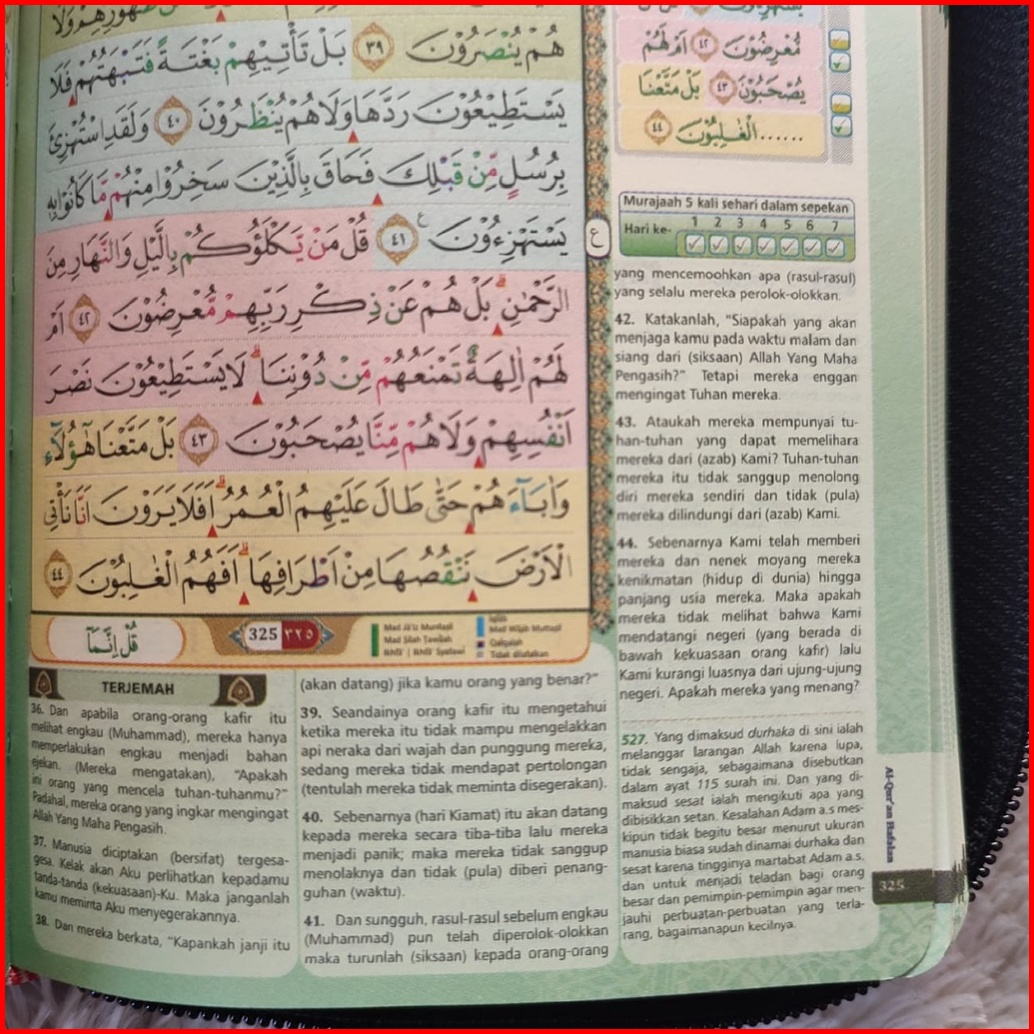 هُمْ يُنْصَرُوْنَ ٣٩ بَلْ تَأْتِيْهِمْ بَغْتَةً فَتَبْهَتُهُمْ فَلَا
يَسْتَطِيْعُوْنَ رَدَّهَا وَلَا هُمْ يُنْظَرُوْنَ ٤٠ وَلَقَدِ اسْتُهْزِئَ
بِرُسُلٍ مِّنْ قَبْلِكَ فَحَاقَ بِالَّذِيْنَ سَخِرُوْا مِنْهُمْ مَّا كَانُوْا بِهٖ
يَسْتَهْزِءُوْنَ ٤١ قُلْ مَنْ يَّكْلَؤُكُمْ بِالَّيْلِ وَالنَّهَارِ مِنَ
الرَّحْمٰنِۗ بَلْ هُمْ عَنْ ذِكْرِ رَبِّهِمْ مُّعْرِضُوْنَ ٤٢ اَمْ
لَهُمْ اٰلِهَةٌ تَمْنَعُهُمْ مِّنْ دُوْنِنَاۗ لَا يَسْتَطِيْعُوْنَ نَصْرَ
اَنْفُسِهِمْ وَلَا هُمْ مِّنَّا يُصْحَبُوْنَ ٤٣ بَلْ مَتَّعْنَا هٰٓؤُلَاۤءِ
وَاٰبَاۤءَهُمْ حَتّٰى طَالَ عَلَيْهِمُ الْعُمُرُۗ اَفَلَا يَرَوْنَ اَنَّا نَأْتِى
الْاَرْضَ نَنْقُصُهَا مِنْ اَطْرَافِهَاۗ اَفَهُمُ الْغٰلِبُوْنَ ٤٤
قُلْ اِنَّمَآ
325 ٣٢٥
Mad Jā'iz Munfaşil
Mad Şilah Ţawīlah
Mad Wājib Muttaşil
Qalqalah
Tidak dilafalkan
مُّعْرِضُوْنَ ٤٢ اَمْ لَهُمْ
يُصْحَبُوْنَ ٤٣ بَلْ مَتَّعْنَا
......الْغٰلِبُوْنَ ٤٤
ع
Murajaah 5 kali sehari dalam sepekan
Hari ke- 1 2 3 4 5 6 7
TERJEMAH
36. Dan apabila orang-orang kafir itu
melihat engkau (Muhammad), mereka hanya
memperlakukan engkau menjadi bahan
ejekan. (Mereka mengatakan), "Apakah
ini orang yang mencela tuhan-tuhanmu?"
Padahal, mereka orang yang ingkar mengingat
Allah Yang Maha Pengasih.
37. Manusia diciptakan (bersifat) tergesa-
gesa. Kelak akan Aku perlihatkan kepadamu
tanda-tanda (kekuasaan)-Ku. Maka janganlah
kamu meminta Aku menyegerakannya.
38. Dan mereka berkata, "Kapankah janji itu
(akan datang) jika kamu orang yang benar?"
39. Seandainya orang kafir itu mengetahui
ketika mereka itu tidak mampu mengelakkan
api neraka dari wajah dan punggung mereka,
sedang mereka tidak mendapat pertolongan
(tentulah mereka tidak meminta disegerakan).
40. Sebenarnya (hari Kiamat) itu akan datang
kepada mereka secara tiba-tiba lalu mereka
menjadi panik; maka mereka tidak sanggup
menolaknya dan tidak (pula) diberi penang-
guhan (waktu).
41. Dan sungguh, rasul-rasul sebelum engkau
(Muhammad) pun telah diperolok-olokkan
maka turunlah (siksaan) kepada orang-orang
yang mencemoohkan apa (rasul-rasul)
yang selalu mereka perolok-olokkan.
42. Katakanlah, "Siapakah yang akan
menjaga kamu pada waktu malam dan
siang dari (siksaan) Allah Yang Maha
Pengasih?" Tetapi mereka enggan
mengingat Tuhan mereka.
43. Ataukah mereka mempunyai tu-
han-tuhan yang dapat memelihara
mereka dari (azab) Kami? Tuhan-tuhan
mereka itu tidak sanggup menolong
diri mereka sendiri dan tidak (pula)
mereka dilindungi dari (azab) Kami.
44. Sebenarnya Kami telah memberi
mereka dan nenek moyang mereka
kenikmatan (hidup di dunia) hingga
panjang usia mereka. Maka apakah
mereka tidak melihat bahwa Kami
mendatangi negeri (yang berada di
bawah kekuasaan orang kafir) lalu
Kami kurangi luasnya dari ujung-ujung
negeri. Apakah mereka yang menang?
527. Yang dimaksud durhaka di sini ialah
melanggar larangan Allah karena lupa,
tidak sengaja, sebagaimana disebutkan
dalam ayat 115 surah ini. Dan yang di-
maksud sesat ialah mengikuti apa yang
dibisikkan setan. Kesalahan Adam a.s mes-
kipun tidak begitu besar menurut ukuran
manusia biasa sudah dinamai durhaka dan
sesat karena tingginya martabat Adam a.s.
dan untuk menjadi teladan bagi orang
besar dan pemimpin-pemimpin agar men-
jauhi perbuatan-perbuatan yang terla-
rang, bagaimanapun kecilnya.
Al-Qur'an Hafalan
325